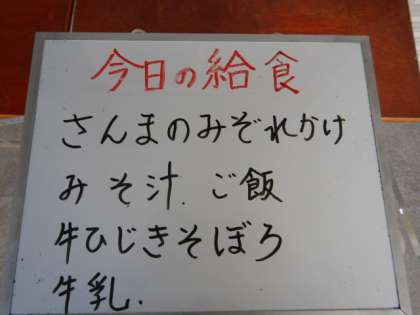 今日の給食
さんまのみぞれかけ
みそ汁. ご飯
牛ひじきそぼろ
牛乳.